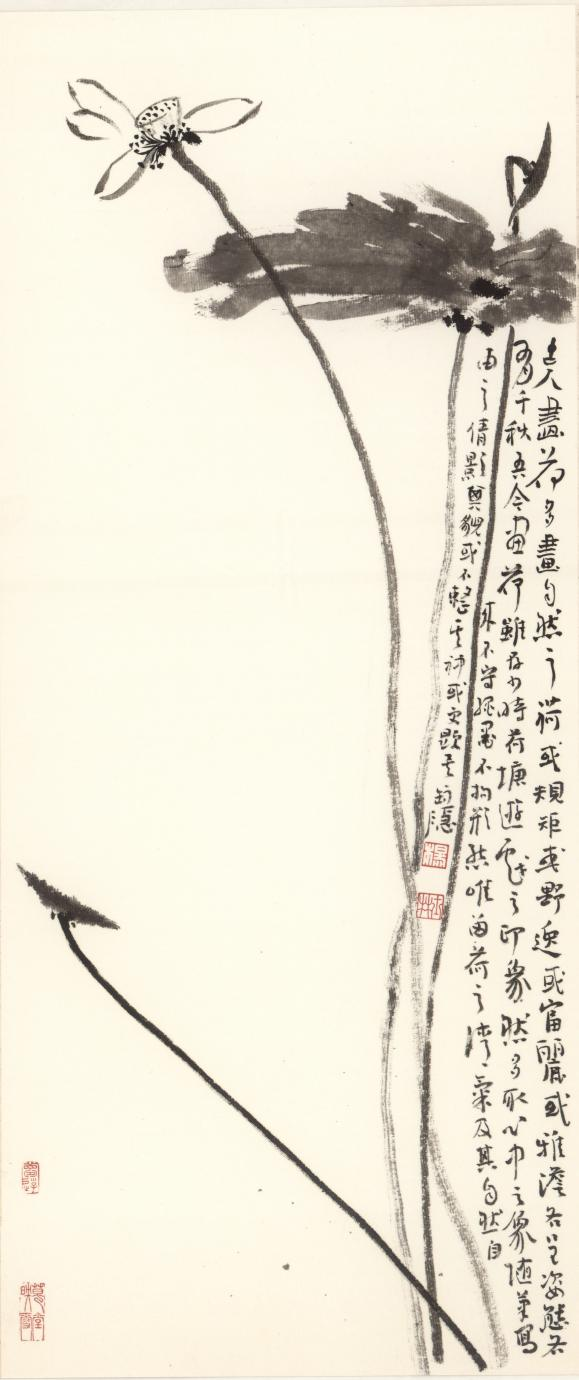 古人畫荷多畫自然之荷或規矩或野逸或富麗或雅淡各呈姿態各
有千秋吾今画荷雖存少時荷塘遊戲之印象然多取心中之象隨筆寫
來不守繩墨不拘形態唯留荷之清氣及其自然自
由之倩影其貌或不整其神或更顯